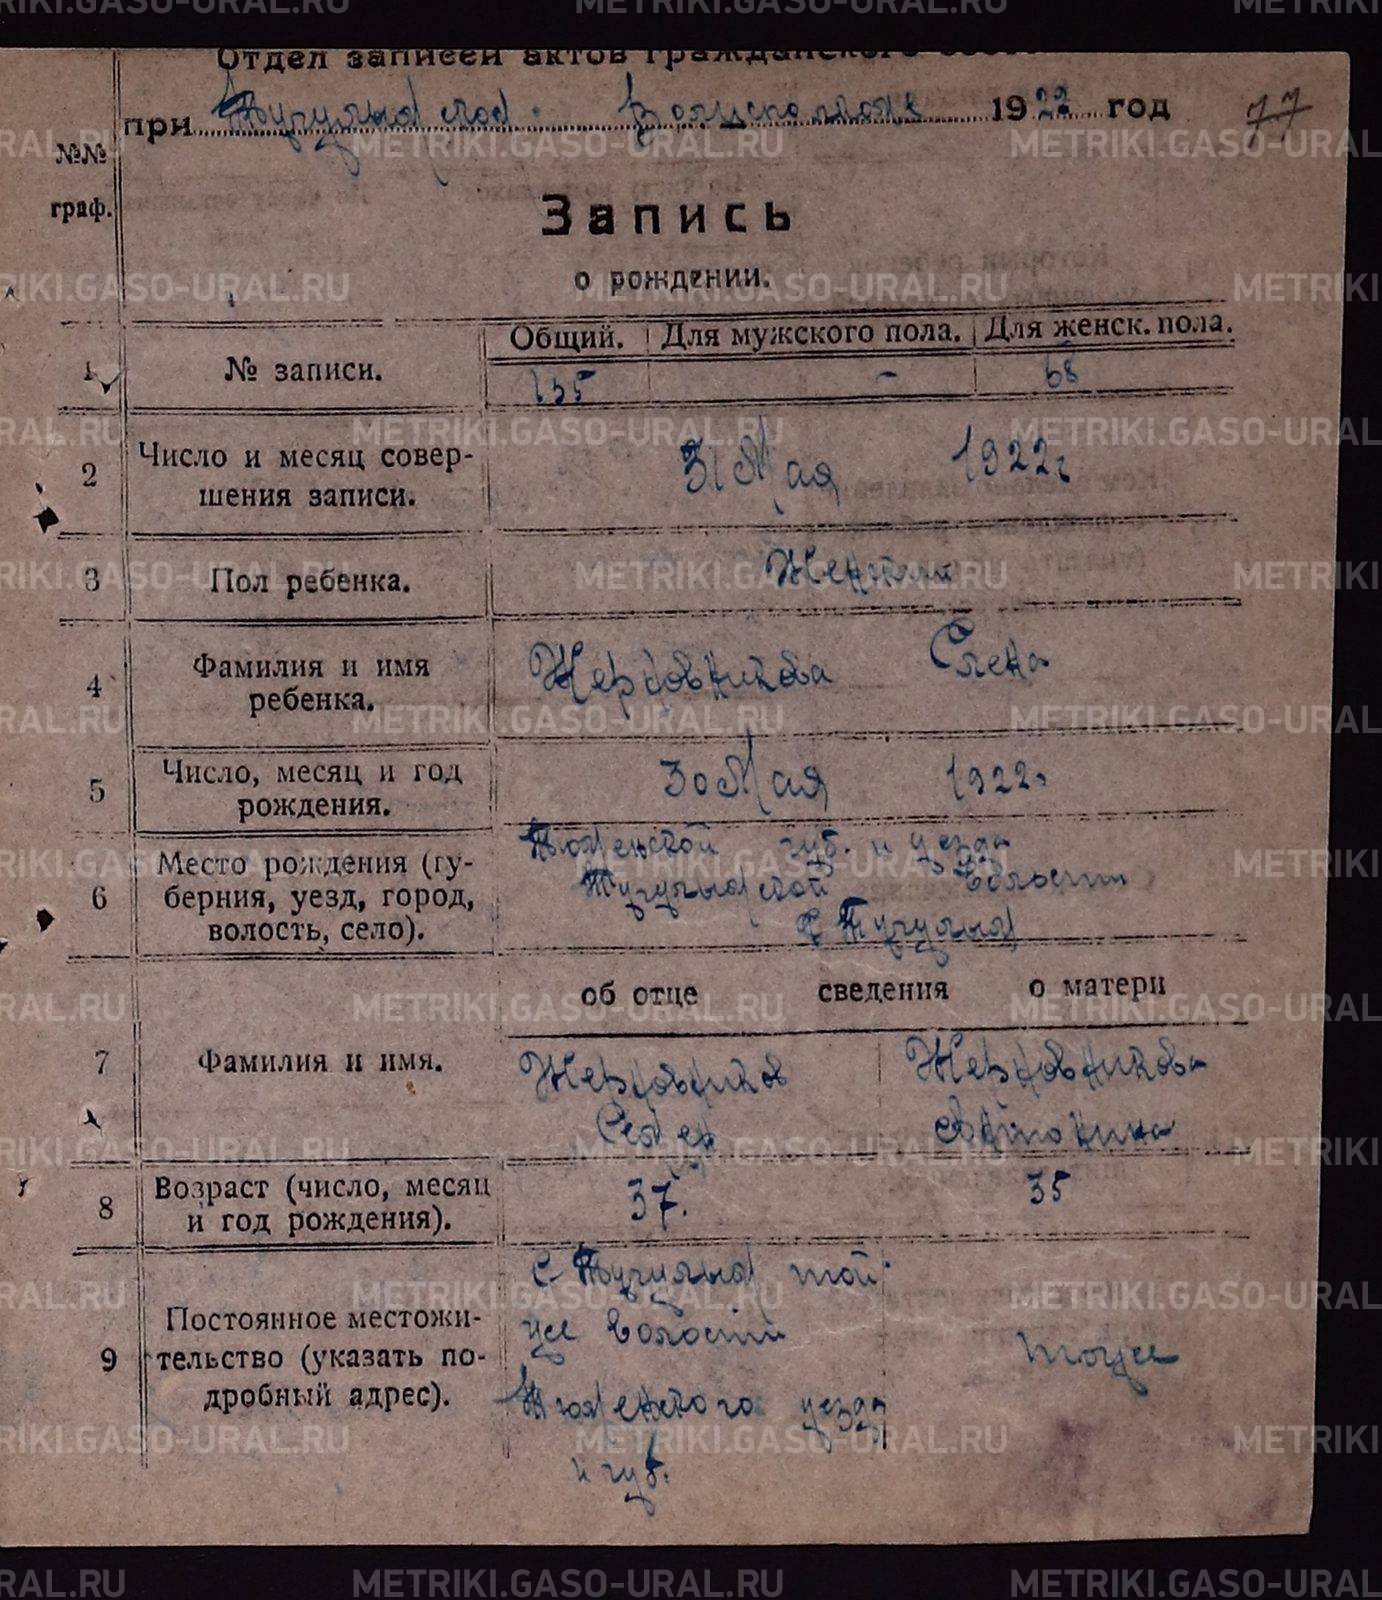 Отдел записей актов гражданского
при Тугулымском Волисполкоме 1922 год
77
№№
граф.
Запись
о рождении.
Общий. Для мужского пола. Для женск. пола.
1 № записи. 135 - 68
2 Число и месяц совер-
шения записи.
31 Мая 1922 г
3 Пол ребенка. Женский
4 Фамилия и имя
ребенка.
Жерновникова Елена
5 Число, месяц и год
рождения.
30 Мая 1922 г
6 Место рождения (гу-
берния, уезд, город,
волость, село).
Тюменской губ. и уезда
Тугулымской волости
С Тугулым
об отце сведения о матери
7 Фамилия и имя.
Жерновников Жерновникова
Антонина
8 Возраст (число, месяц
и год рождения).
37. 35
9 Постоянное местожи-
тельство (указать по-
дробный адрес).
С Тугулым той
же волости
Тюменского уезда
и губ.
тоже
METRIKI.GASO-URAL.RU